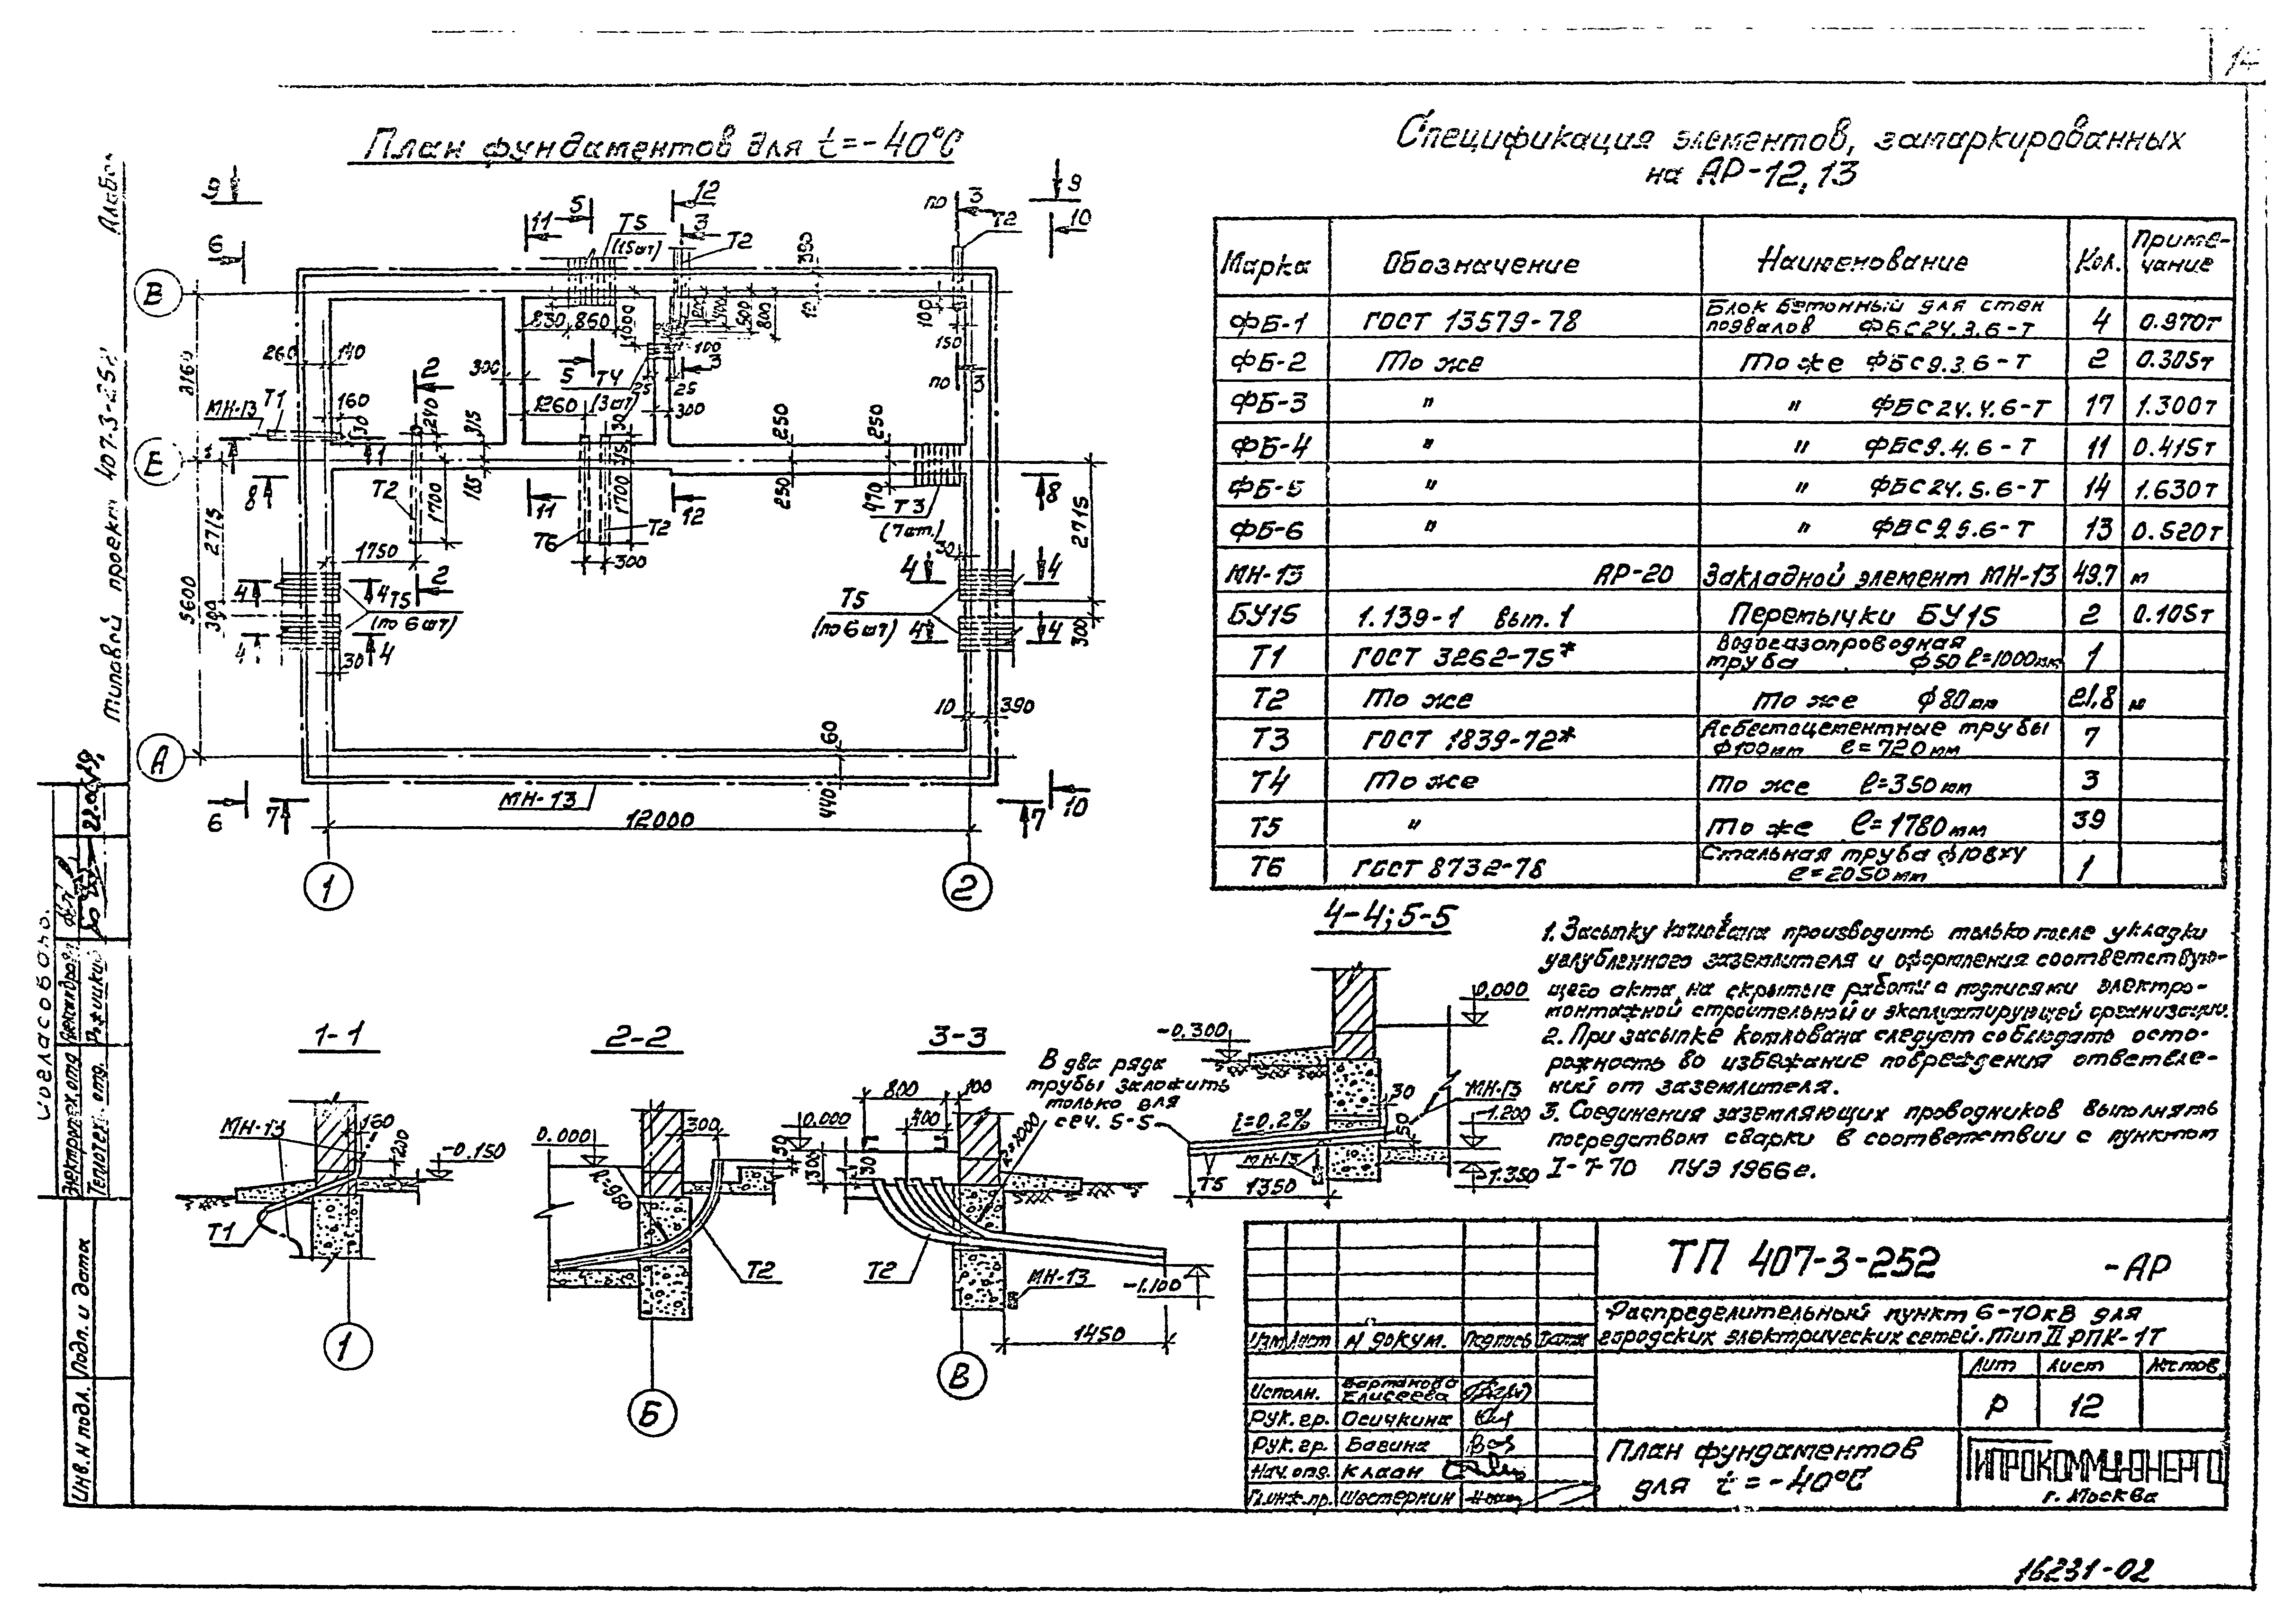 14
План фундаментов для t=-40°С
Спецификация элементов, замаркированных
на АР-12,13
Марка Обозначение Наименование Кол. Приме-
чание
ФБ-1 ГОСТ 13579-78 Блок бетонный для стен
подвалов ФБС24.3.6-Т 4 0.970т
ФБ-2 То же То же ФБС9.3.6-Т 2 0.305т
ФБ-3 " " ФБС24.4.6-Т 17 1.300т
ФБ-4 " " ФБС9.4.6-Т 11 0.415т
ФБ-5 " " ФБС24.5.6-Т 14 1.630т
ФБ-6 " " ФБС9.5.6-Т 13 0.520т
МН-13 АР-20 Закладной элемент МН-13 49.7 м
БУ15 1.139-1 вып.1 Перемычки БУ15 2 0.105т
Т1 ГОСТ 3262-75* Водогазопроводная
труба ф50 l=1000мм 1
Т2 То же То же ф80мм 21,8 м
Т3 ГОСТ 1839-72* Асбестоцементные трубы
ф100мм l=720мм 7
Т4 То же То же l=350мм 3
Т5 " То же l=1780мм 39
Т6 ГОСТ 8732-78 Стальная труба ф108х4
l=2050мм 1
9 6 5 11 12 3 Т5
(15шт) Т2 по 3 Т2 9 10
В 390
830 860 1000 200 400 500 800 10 100
260 140 2 300 5 Т4
(3шт) 25 25 100 3 150 по 3
3160 МН-13 Т1 160 30 240 315 1260 30 300 250 250
Б 1 1
8 Т2 1700 185 11 1700 Т2 12 250 470 Т3
(7шт.) 8
2715 1750 Т6 300 30 2715
4 4 2 4 4
5600 300 Т5
(по 6шт) Т5
(по 6шт) 300
4 4 4 4
30 10 390
А 60
440
МН-13
6 7 12000 7 10
1 2
4-4; 5-5
0,000
-0.300
30
МН-13
-1.200
i=0.2%
50
МН-13
Т5 1350
-1.350
1. Засыпку котлована производить только после укладки
углубленного заземлителя и оформления соответствую-
щего акта на скрытые работы с подписями электро-
монтажной строительной и эксплуатирующей организации.
2. При засыпке котлована следует соблюдать осто-
рожность во избежание повреждения ответвле-
ний от заземлителя.
3. Соединения заземляющих проводников выполнять
посредством сварки в соответствии с пунктом
I-7-70 ПУЭ 1966г.
1-1
МН-13 160
200
-0.150
Т1
1
2-2
0.000 300 50
l=950
Т2
Б
3-3
800 100
0.000 400
300 30
l=1000
Т2
МН-13
-1.100
1450
В
В два ряда
трубы заложить
только для
сеч. 5-5
ТП 407-3-252 -АР
Распределительный пункт 6-10кВ для
городских электрических сетей. Тип II РПК-1Т
Изм Лист N докум. Подпись Дата
Лит Лист Листов
Р 12
Исполн. Вартанова
Елисеева
Рук. гр. Осичкина
Рук. гр. Бавина
Нач. отд. Клаан
Гл. инж. пр. Шестеркин
План фундаментов
для t=-40°С
ГИПРОКОММУНЭНЕРГО
г. Москва
16231-02
Типовой проект 407-3-252
Альбом
Согласовано.
Электротех. отд
Теплотех. отд.
Рожицкий
22.01.79
Инв. N подл. Подп. и дата